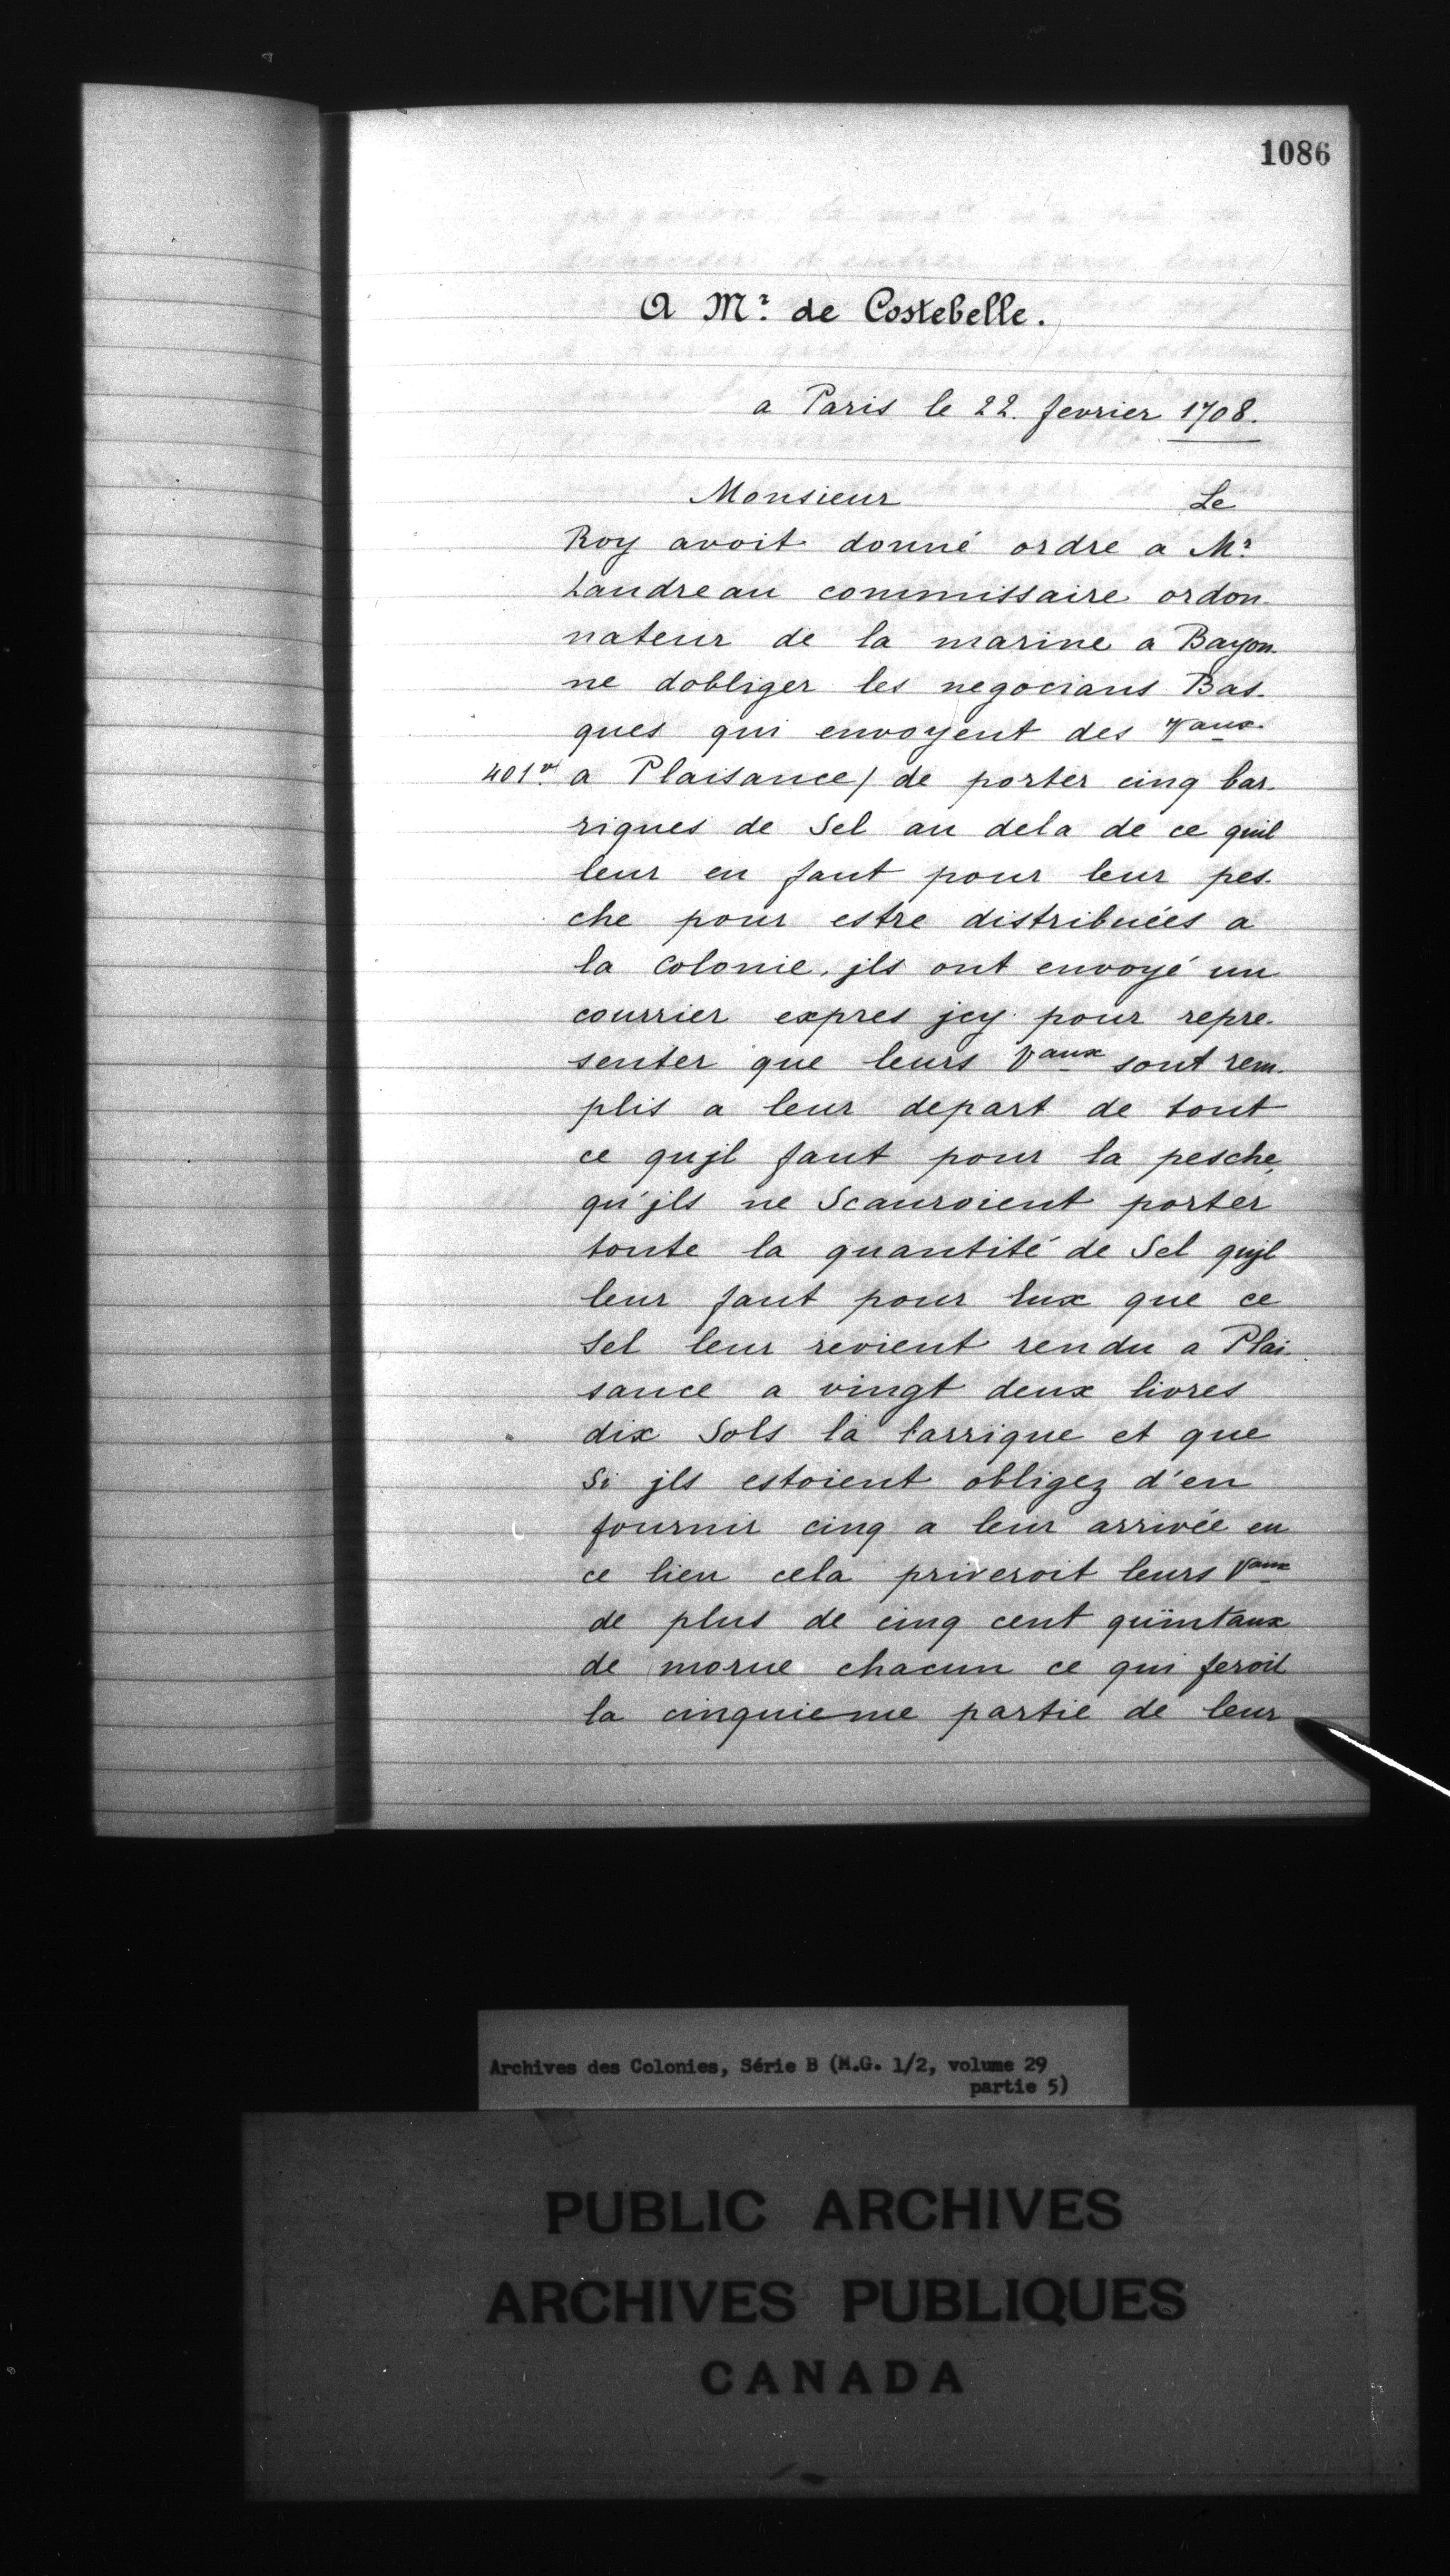 1086
A Mr. de Costebelle.
a Paris le 22. fevrier 1708.
Monsieur Le
Roy avoit donné ordre a Mr.
Landreau commissaire ordon-
nateur de la marine a Bayon-
ne dobliger les negocians Bas-
ques qui envoyent des Vaux
401vo. a Plaisance/ de porter cinq bar-
riques de Sel au dela de ce quil
leur en faut pour leur pes-
che pour estre distribuées a
la Colonie, jls ont envoyé un
courrier expres jcy pour repre-
senter que leurs Vaux sont rem-
plis a leur depart de tout
ce qujl faut pour la pesche,
qu'jls ne Scauroient porter
toute la quantité de Sel qujl
leur faut pour eux que ce
Sel leur revient rendu a Plai-
sance a vingt deux livres
dix Sols la barrique et que
Si jls estoient obligez d'en
fournir cinq a leur arrivée en
ce lieu cela priveroit leurs Vaux
de plus de cinq cent quintaux
de morue chacun ce qui feroit
la cinquieme partie de leur
Archives des Colonies, Série B (M.G. 1/2, volume 29
partie 5)
PUBLIC ARCHIVES
ARCHIVES PUBLIQUES
CANADA